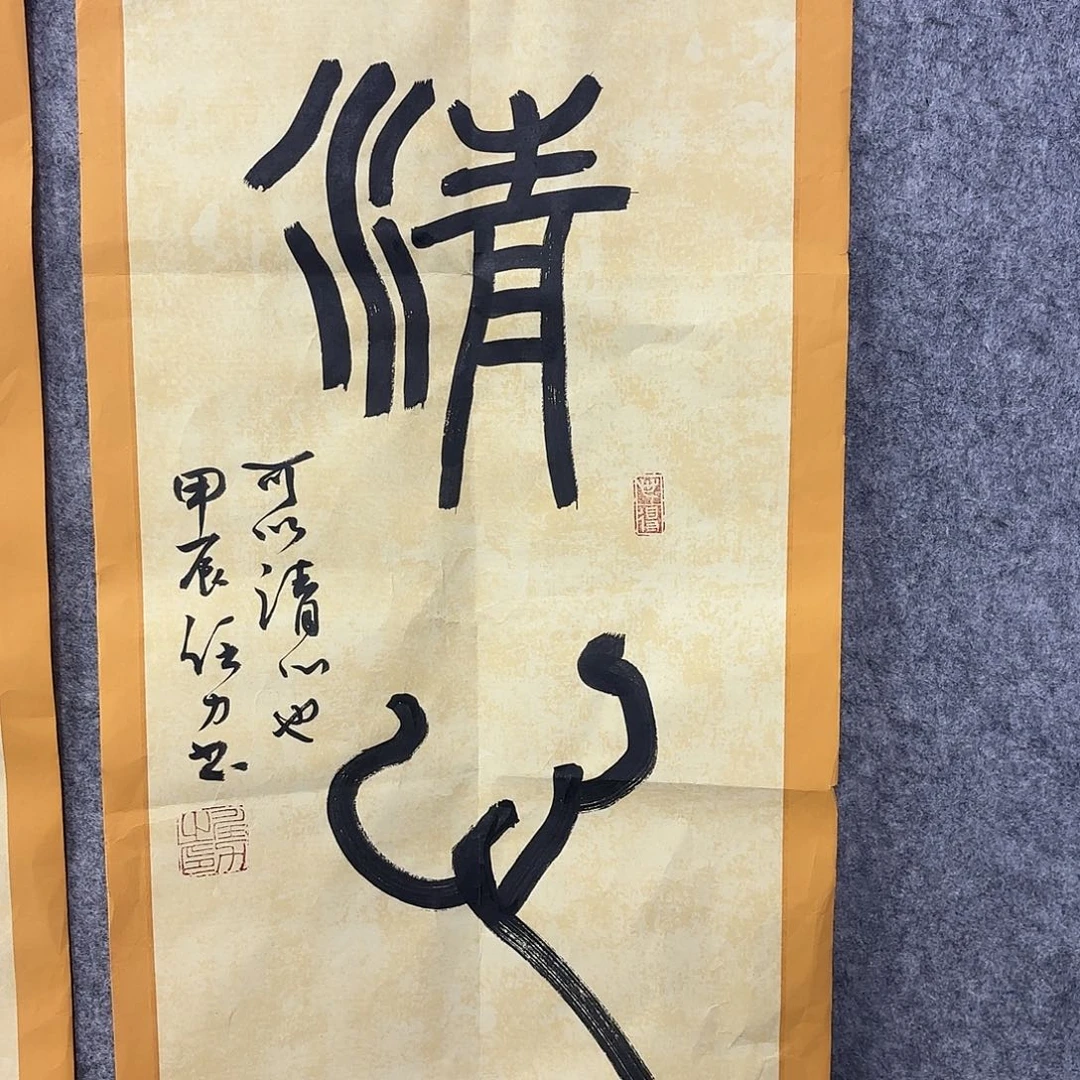 清心
可以清心也
甲辰任力书